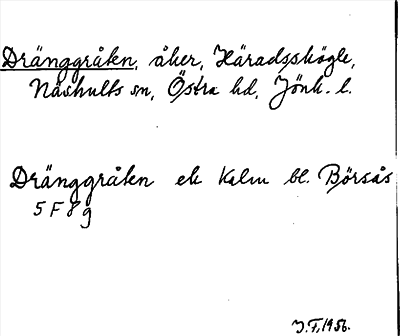 Dränggråken, åker, Häradsskögle,
Näshults sn, Östra hd, Jönk. l.
Dränggråken ek Kalm bl. Börsås
5 F 8 g
J.F, 1956.